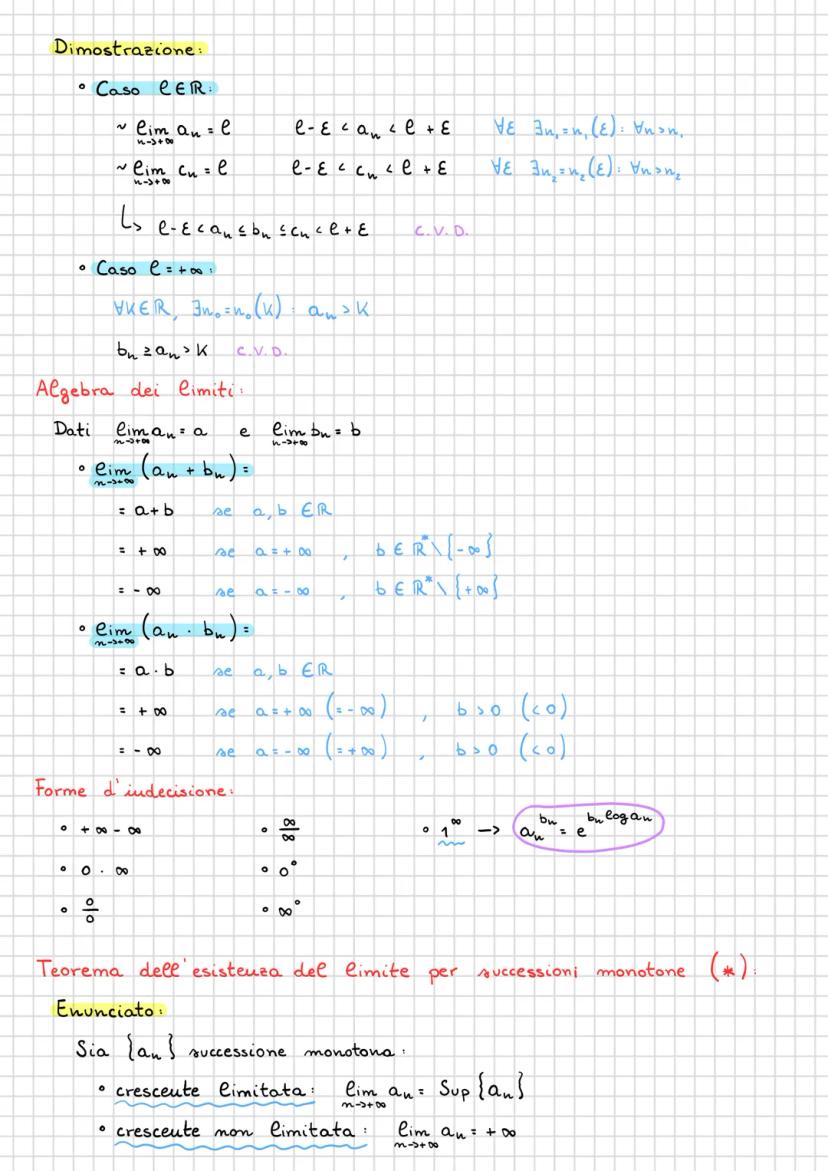 Dimostrazione:
• Caso ℓ∈ℝ:
~ lim n->+∞ an = ℓ ℓ-ε < an < ℓ+ε ∀ε ∃n₁=n₁(ε): ∀n>n₁
~ lim n->+∞ cn = ℓ ℓ-ε < cn < ℓ+ε ∀ε ∃n₂=n₂(ε): ∀n>n₂
↳ ℓ-ε<an≤bn≤cn<ℓ+ε C.V.D.
• Caso ℓ=+∞:
∀K∈ℝ, ∃n₀=n₀(K): an>K
bn≥an>K C.V.D.
Algebra dei limiti:
Dati lim n->+∞ an = a e lim n->+∞ bn = b
• lim n->+∞ (an + bn) =
= a+b se a,b ∈ℝ
= +∞ se a=+∞ , b∈ℝ*\{-∞}
= -∞ se a=-∞ , b∈ℝ*\{+∞}
• lim n->+∞ (an · bn) =
= a·b se a,b ∈ℝ
= +∞ se a=+∞ (=-∞) , b>0 (<0)
= -∞ se a=-∞ (=+∞) , b>0 (<0)
Forme d'indecisione:
• +∞-∞ • ∞/∞ • 1^∞ -> an^bn = e^(bn log an)
• 0·∞ • 0⁰
• 0/0 • ∞⁰
Teorema dell'esistenza del limite per successioni monotone (*):
Enunciato:
Sia {an} successione monotona:
• crescente limitata: lim n->+∞ an = Sup{an}
• crescente non limitata: lim n->+∞ an = +∞